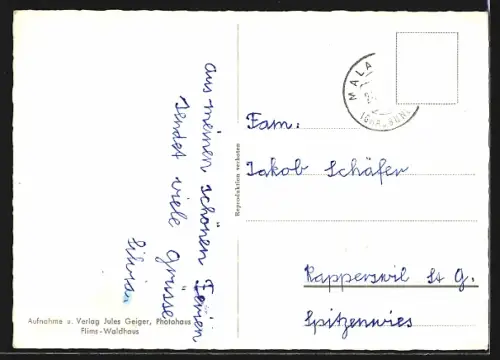 Aus meinen schönen Ferien
sendet viele Grüsse
Silvia
Aufnahme u. Verlag Jules Geiger, Photohaus
Flims-Waldhaus
Reproduktion verboten
MALA
Fam:
Jakob Schäfer
Rapperswil St G.
Spitzenwies